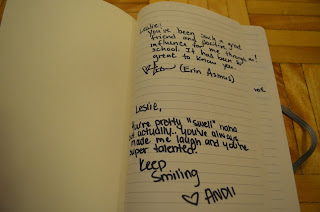 Leslie!
You've been such a good
friend and positive
influence for me through
school. It has been
great to know you
(Erin Asmus)
Leslie,
You're pretty "swell" haha
but actually.. you've always
made me laugh and you're
super talented!
Keep
Smiling
♡ ANDII